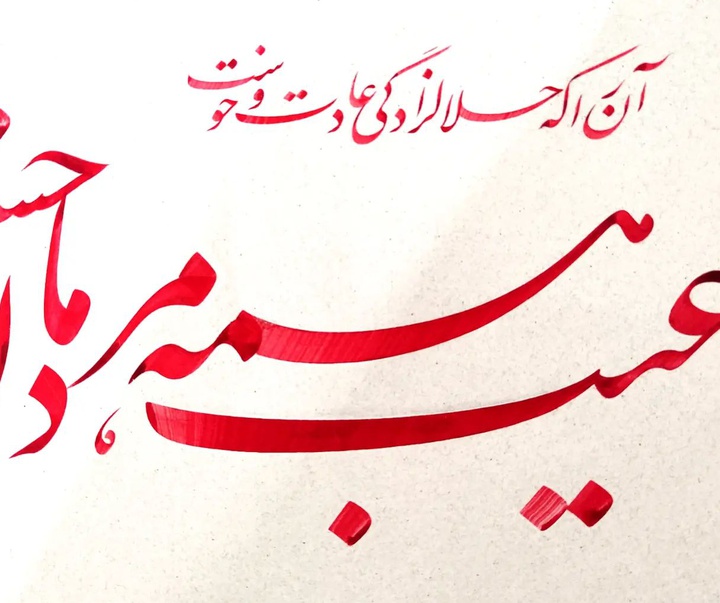 آن را که حلالزادگی عادت و خوست
عیب همه مردمان